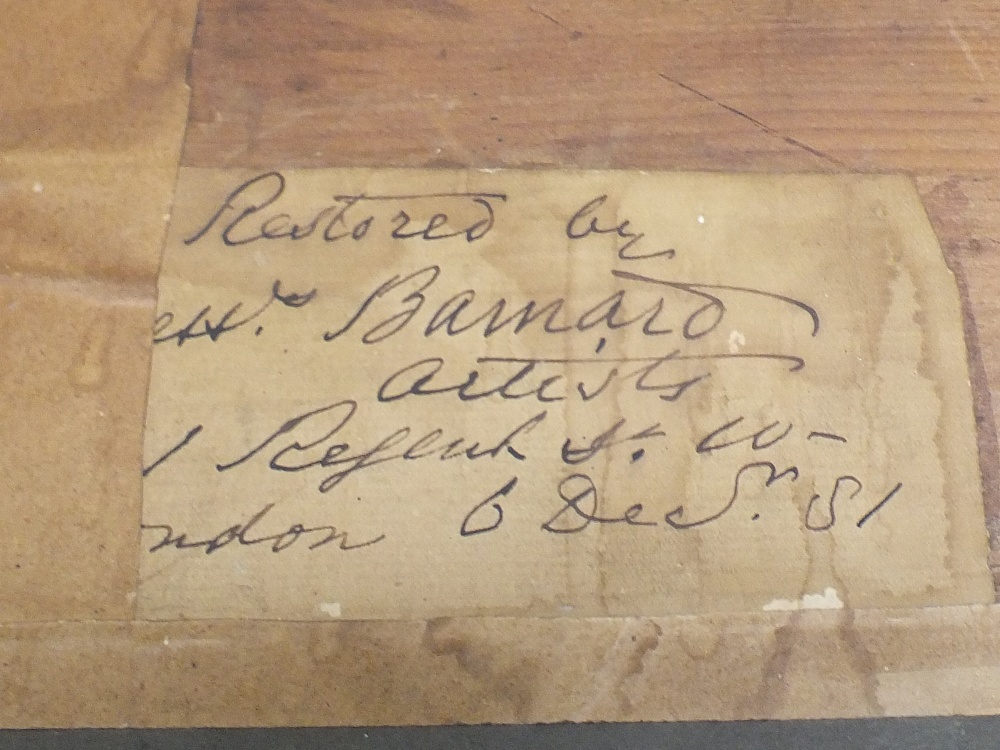 Restored by
essrs Barnard
Artists
1 Regent St. W-
ndon 6 Decr. 81